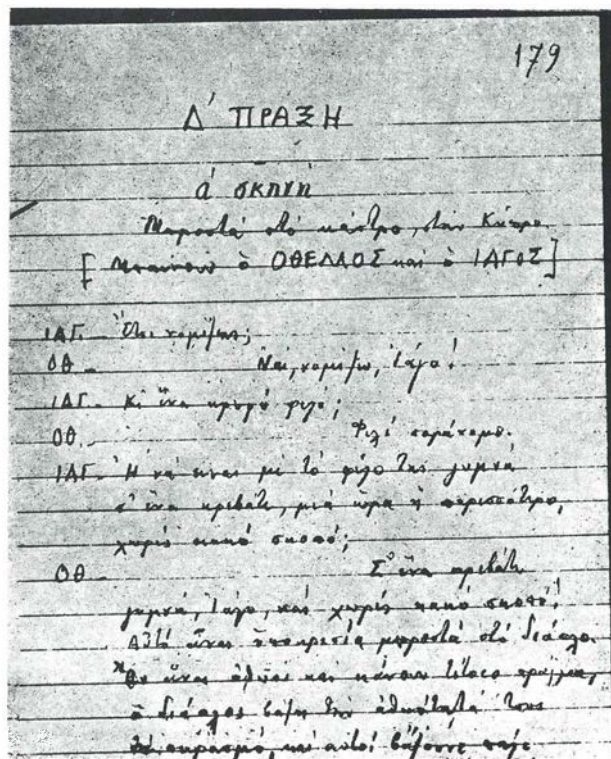 179
Δ΄ ΠΡΑΞΗ
α΄ σκηνή
Μπροστά στό κάστρο, στήν Κύπρο.
[Μπαίνουν ὁ ΟΘΕΛΛΟΣ καί ὁ ΙΑΓΟΣ]
ΙΑΓ. – Ἔτσι νομίζεις;
ΟΘ. – Ναί, νομίζω, Ἰάγο!
ΙΑΓ. – Κι ἕνα κρυφό φιλί;
ΟΘ. – Φιλί παράνομο.
ΙΑΓ. – Ἤ νά εἶναι μέ τό φίλο της γυμνή
σ' ἕνα κρεβάτι, μιά ὥρα ἤ περισσότερο,
χωρίς κακό σκοπό;
ΟΘ – Σ' ἕνα κρεβάτι
γυμνή, Ἰάγο, καί χωρίς κακό σκοπό!
Αὐτό εἶναι ὑποκρισία μπροστά στό διάολο.
εἶναι καί κάνουν τέτοιο πρᾶγμα,
ὁ διάολος βάζει τήν τους
σέ πειρασμό, καί αὐτοί βάζουνε